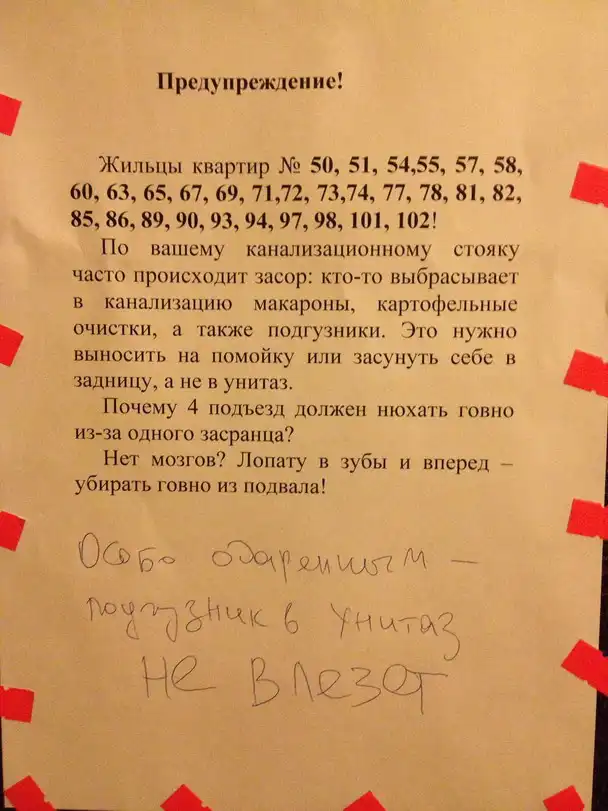 Предупреждение!
Жильцы квартир № 50, 51, 54,55, 57, 58,
60, 63, 65, 67, 69, 71,72, 73,74, 77, 78, 81, 82,
85, 86, 89, 90, 93, 94, 97, 98, 101, 102!
По вашему канализационному стояку
часто происходит засор: кто-то выбрасывает
в канализацию макароны, картофельные
очистки, а также подгузники. Это нужно
выносить на помойку или засунуть себе в
задницу, а не в унитаз.
Почему 4 подъезд должен нюхать говно
из-за одного засранца?
Нет мозгов? Лопату в зубы и вперед –
убирать говно из подвала!
Особо одаренным —
подгузник в унитаз
не влезет